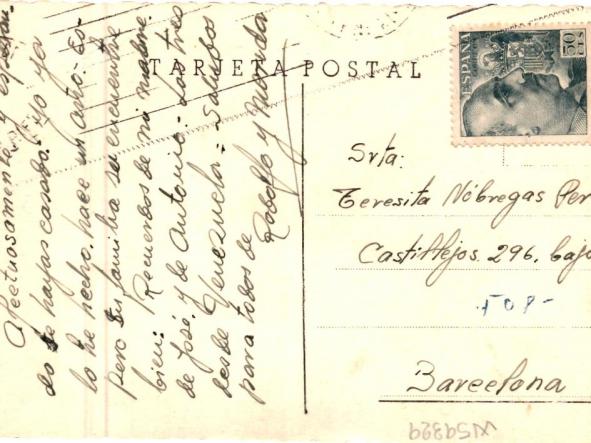 Afectuosamente y esperan-
do te hayas casado. Yo ya
lo he hecho, hace un año. Es-
pero tus familia se encuentre
bien. Recuerdos de mi madre
de José y de Antonio. Los tres
desde Venezuela. Saludos
para todos de
Rodolfo y
TARJETA POSTAL
ESPAÑA
50 CTS
Srta:
Teresita Nóbregas Per
Castillejos. 296. bajo
Barcelona
W59329